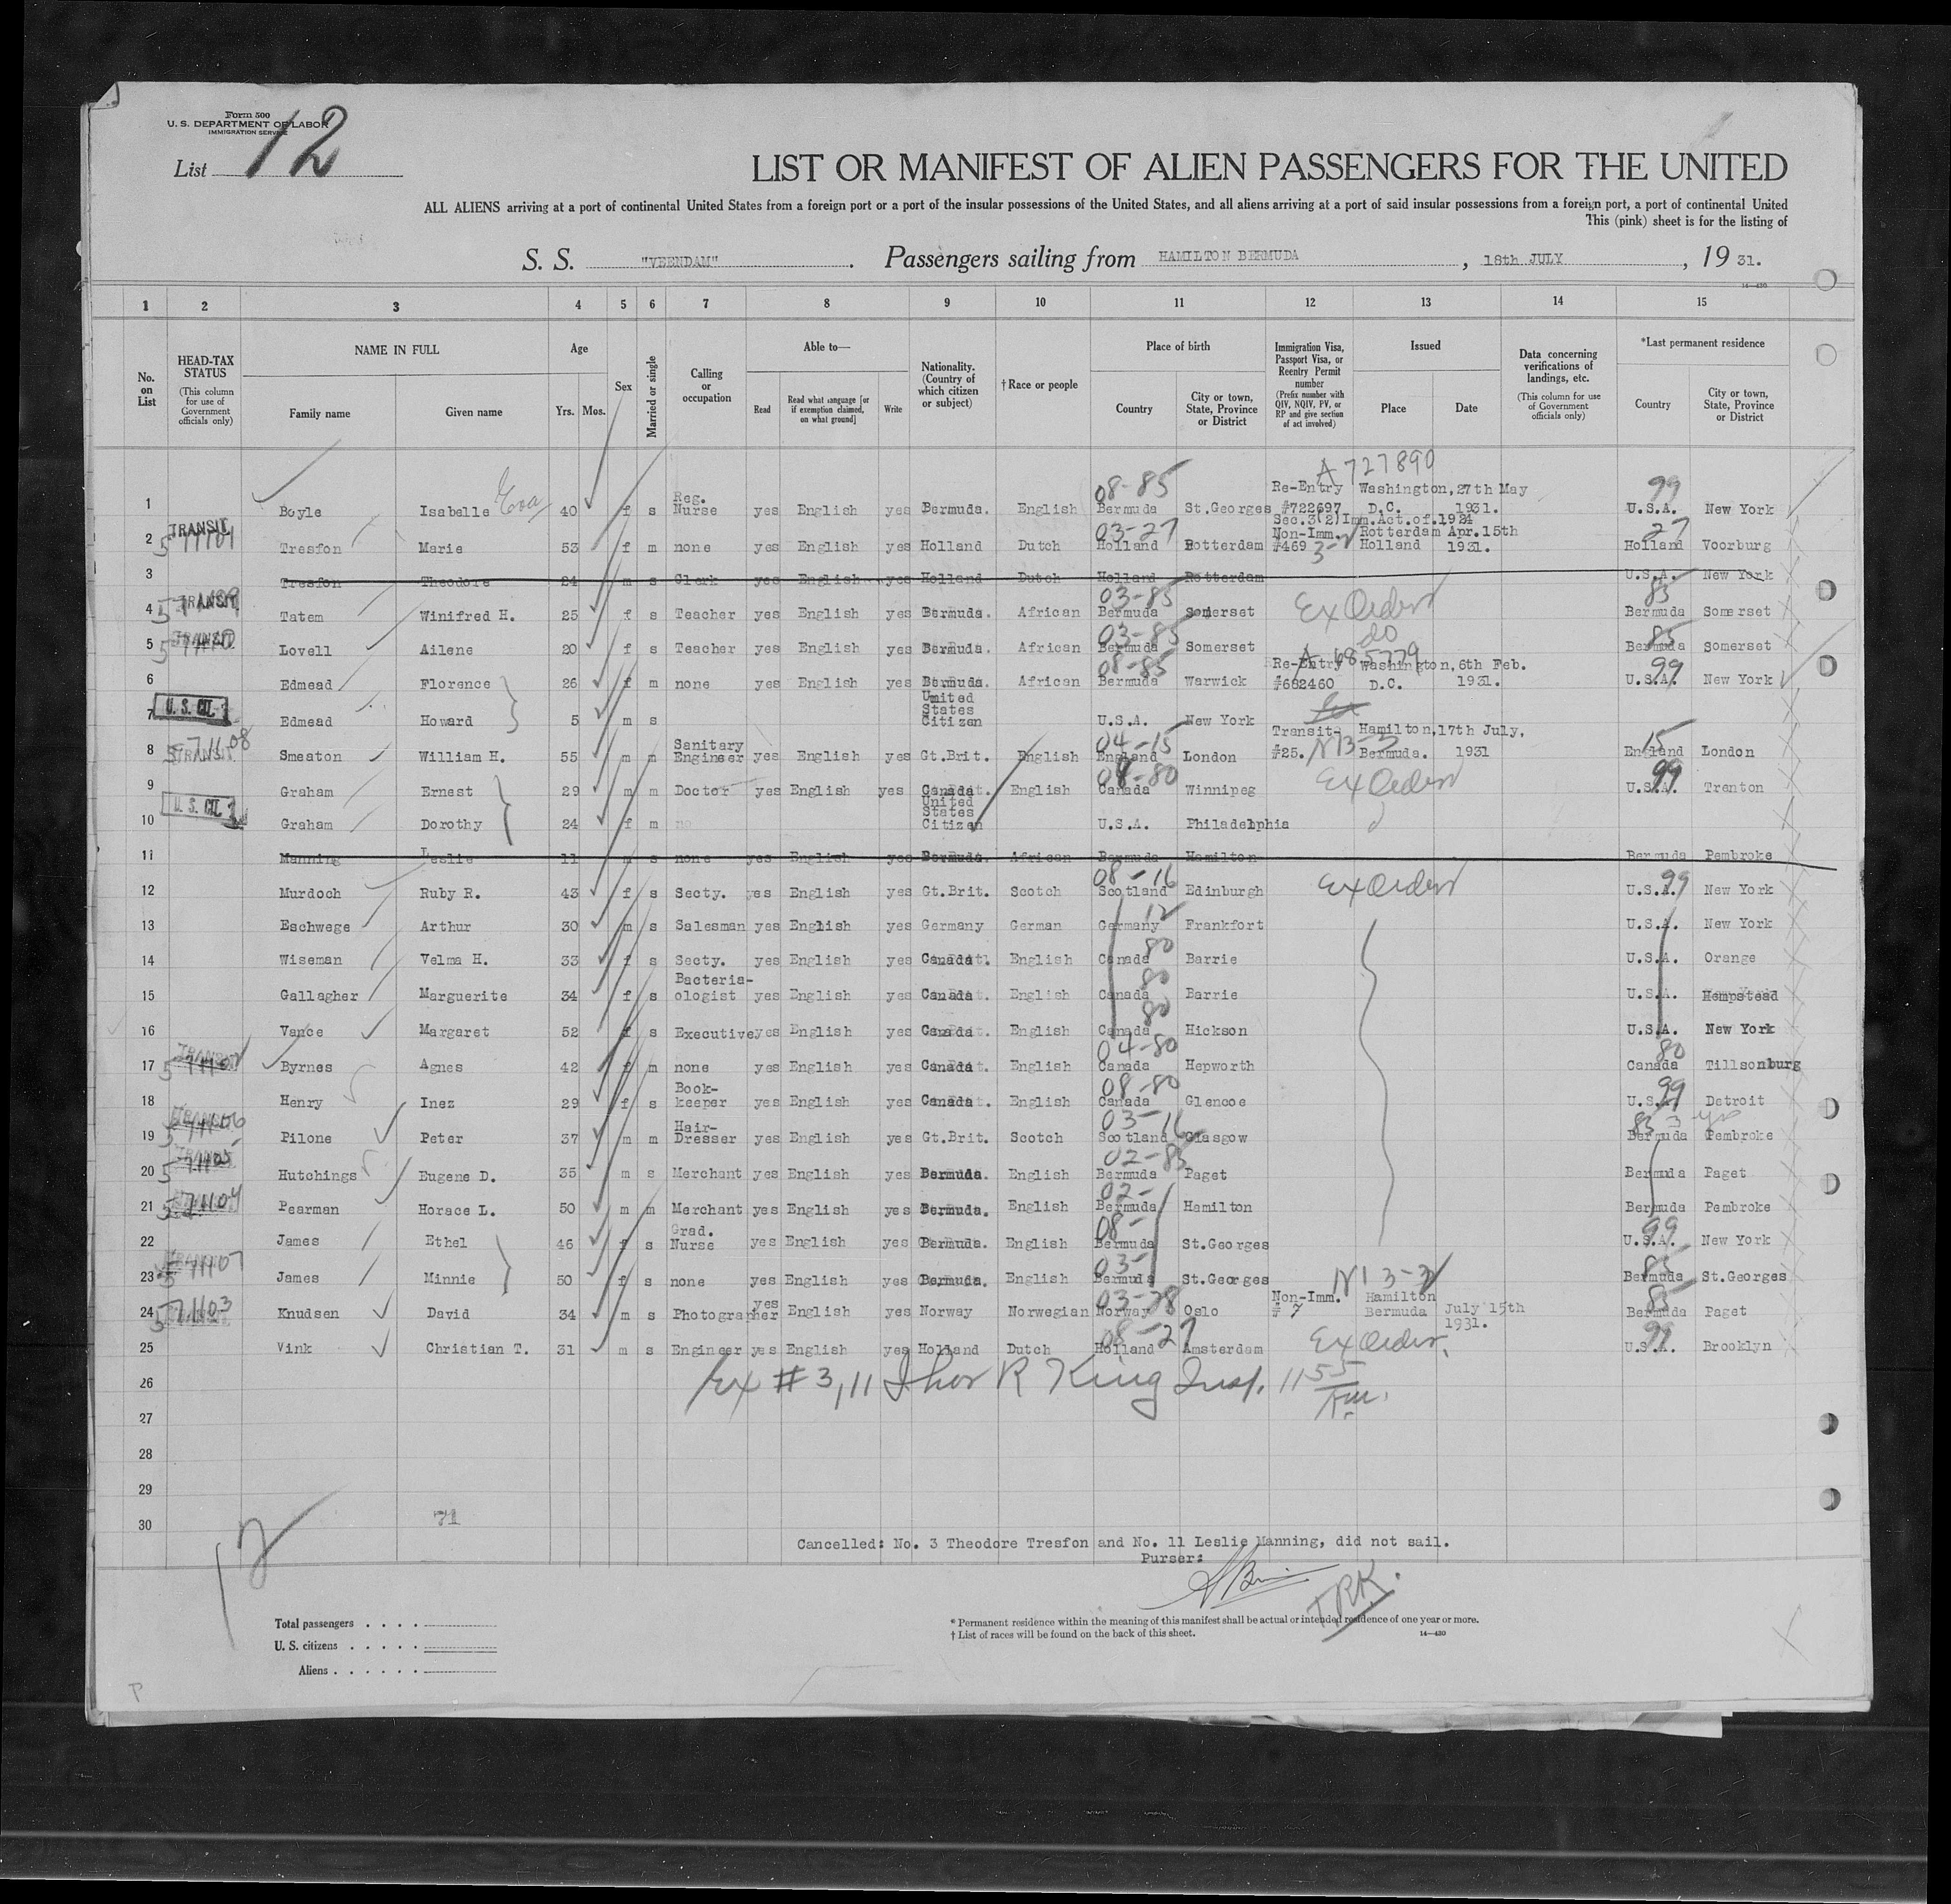 Form 500
U. S. DEPARTMENT OF LABOR
IMMIGRATION SERVICE
List 12
LIST OR MANIFEST OF ALIEN PASSENGERS FOR THE UNITED
ALL ALIENS arriving at a port of continental United States from a foreign port or a port of the insular possessions of the United States, and all aliens arriving at a port of said insular possessions from a foreign port, a port of continental United
This (pink) sheet is for the listing of
S. S. "VEENDAM". Passengers sailing from HAMILTON BERMUDA, 18th JULY, 19 31.
14-430
1 2 3 4 5 6 7 8 9 10 11 12 13 14 15
No. on List
HEAD-TAX STATUS (This column for use of Government officials only)
NAME IN FULL Family name Given name
Age Yrs. Mos.
Sex
Married or single
Calling or occupation
Able to— Read Read what language [or if exemption claimed, on what ground] Write
Nationality. (Country of which citizen or subject)
†Race or people
Place of birth Country City or town, State, Province or District
Immigration Visa, Passport Visa, or Reentry Permit number (Prefix number with QIV, NQIV, PV, or RP and give section of act involved)
Issued Place Date
Data concerning verifications of landings, etc. (This column for use of Government officials only)
*Last permanent residence Country City or town, State, Province or District
A 727890
08-85 99
1 Boyle Isabelle Eva 40 f s Reg. Nurse yes English yes Bermuda. English Bermuda St.Georges Re-Entry #722697 Washington, D.C. 27th May 1931. U.S.A. New York
Sec.3(2)Imm.Act.of.1924
TRANSIT 03-27 27
2 Tresfon Marie 53 f m none yes English yes Holland Dutch Holland Rotterdam Non-Imm. #469 3-2 Rotterdam Holland Apr.15th 1931. Holland Voorburg
3 Tresfon Theodore 24 m s Clerk yes English yes Holland Dutch Holland Rotterdam U.S.A. New York
TRANSIT 03-85 85
4 Tatem Winifred H. 25 f s Teacher yes English yes Bermuda. African Bermuda Somerset Ex Order Bermuda Somerset
TRANSIT 03-85 do 85
5 Lovell Ailene 20 f s Teacher yes English yes Bermuda. African Bermuda Somerset Bermuda Somerset
A 685779
08-85 99
6 Edmead Florence 26 f m none yes English yes Bermuda. African Bermuda Warwick Re-Entry #682460 Washington, D.C. 6th Feb. 1931. U.S.A. New York
U.S. CIT.
7 Edmead Howard 5 m s United States Citizen U.S.A. New York
TRANSIT 5-71108 04-15 15
8 Smeaton William H. 55 m m Sanitary Engineer yes English yes Gt.Brit. English England London Transit- #25. Hamilton, Bermuda. 17th July, 1931 England London
08-80 99
9 Graham Ernest 29 m m Doctor yes English yes Canada English Canada Winnipeg Ex Order U.S.A. Trenton
U.S. CIT.
10 Graham Dorothy 24 f m United States Citizen U.S.A. Philadelphia
11 Manning Leslie 11 m s none yes English yes Bermuda. African Bermuda Hamilton Bermuda Pembroke
08-16 99
12 Murdoch Ruby R. 43 f s Secty. yes English yes Gt.Brit. Scotch Scotland Edinburgh Ex Order U.S.A. New York
12
13 Eschwege Arthur 30 m s Salesman yes English yes Germany German Germany Frankfort U.S.A. New York
80
14 Wiseman Velma H. 33 f s Secty. yes English yes Canada English Canada Barrie U.S.A. Orange
80
15 Gallagher Marguerite 34 f s Bacteria-ologist yes English yes Canada English Canada Barrie U.S.A. Hempstead
80
16 Vance Margaret 52 f s Executive yes English yes Canada English Canada Hickson U.S.A. New York
04-80 80
17 Byrnes Agnes 42 f m none yes English yes Canada English Canada Hepworth Canada Tillsonburg
08-80 99
18 Henry Inez 29 f s Book-keeper yes English yes Canada English Canada Glencoe U.S.A. Detroit
5-71106 03-16 83 3 yrs
19 Pilone Peter 37 m m Hair-Dresser yes English yes Gt.Brit. Scotch Scotland Glasgow Bermuda Pembroke
5-71105 02-85
20 Hutchings Eugene D. 35 m s Merchant yes English yes Bermuda. English Bermuda Paget Bermuda Paget
5-71104 02-
21 Pearman Horace L. 50 m m Merchant yes English yes Bermuda. English Bermuda Hamilton Bermuda Pembroke
08- 99
22 James Ethel 46 f s Grad. Nurse yes English yes Bermuda. English Bermuda St.Georges U.S.A. New York
5-71107 03- 85
23 James Minnie 50 f s none yes English yes Bermuda. English Bermuda St.Georges Bermuda St.Georges
5-71103 03-28 85
24 Knudsen David 34 m s Photographer yes English yes Norway Norwegian Norway Oslo Non-Imm. # 7 Hamilton Bermuda July 15th 1931. Bermuda Paget
08-27 99
25 Vink Christian T. 31 m s Engineer yes English yes Holland Dutch Holland Amsterdam Ex Order. U.S.A. Brooklyn
26 Ex # 3, 11 Thor R King Insp. 1155 Am.
27
28
29
30
71
Cancelled: No. 3 Theodore Tresfon and No. 11 Leslie Manning, did not sail.
Purser:
TRK.
Total passengers . . . .
U. S. citizens . . . . .
Aliens . . . . . .
* Permanent residence within the meaning of this manifest shall be actual or intended residence of one year or more.
† List of races will be found on the back of this sheet. 14-430
P